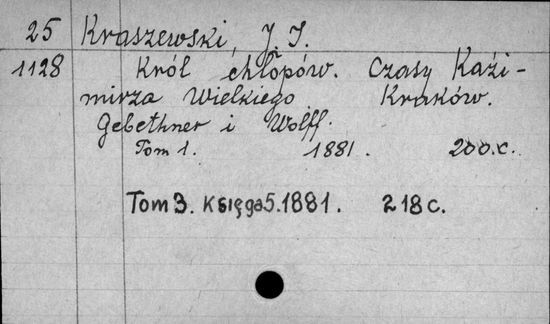 25 Kraszewski, J. I.
1128 Król chłopów. Czasy Kaźi-
mirza Wielkiego Kraków.
Gebethner i Wolff.
Tom 1. 1881. 200.c.
Tom 3. Księga 5. 1881. 218 c.